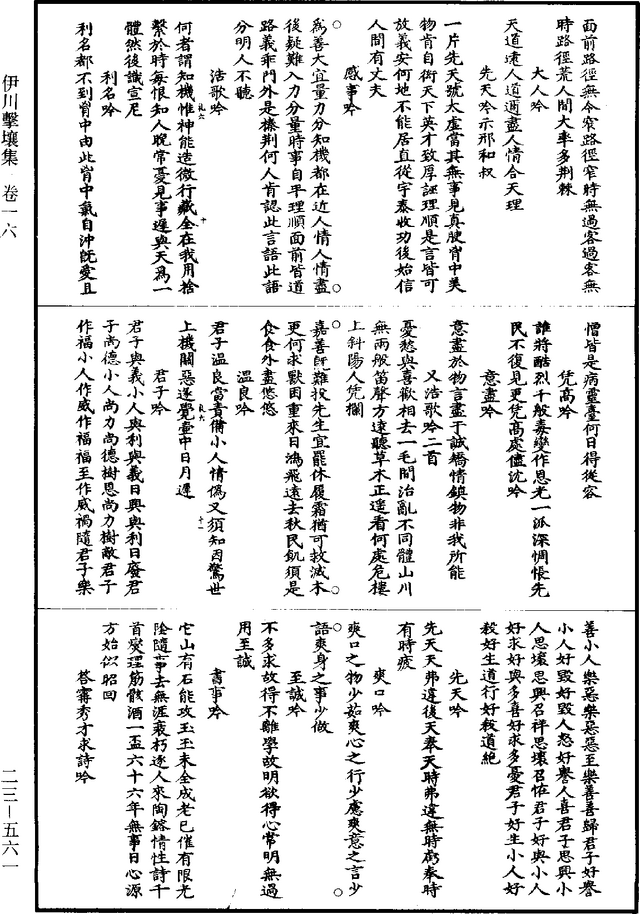 伊川擊壤集 卷一六
二三—五六一
面前路徑無令窄路徑窄時無過客過客無
時路徑荒人間大率多荆棘
大人吟
天道遠人道邇盡人情合天理
先天吟示邢和叔
一片先天號太虛當其無事見真腴胷中美
物肯自衒天下英才致厚誣理順是言皆可
放義安何地不能居直從宇泰收功後始信
人間有丈夫
感事吟
爲善大宜量力分知機都在近人情人情盡
後疑難入力分量時事自平理順面前皆道
路義乖門外是榛荆何人肯認此言語此語
分明人不聽
浩歌吟
何者謂知機惟神能造微行藏全在我用捨
繫於時每恨知人晚常憂見事遲與天爲一
體然後識宣尼
利名吟
利名都不到胷中由此胷中氣自沖旣愛且
憎皆是病靈臺何日得從容
凭高吟
誰將酷烈千般毒變作恩光一派深惆悵先
民不復見更凭高處儘沈吟
意盡吟
意盡於物言盡于誠矯情鎮物非我所能
又浩歌吟二首
憂愁與喜歡相去一毛間治亂不同體山川
無兩般笛聲方遠聽草木正遥看何處危樓
上斜陽人凭欄
嘉善旣難投先生宜罷休履霜猶可救滅木
更何求獸困重來日鴻飛遠去秋民飢須是
食食外盡悠悠
溫良吟
君子溫良當責備小人情僞又須知因驚世
上機關惡遂覺壷中日月遲
君子吟
君子與義小人與利與義日興與利日廢君
子尚德小人尚力尚德樹恩尚力樹敵君子
作福小人作威作福福至作威禍隨君子樂
善小人樂惡樂惡惡至樂善善歸君子好譽
小人好毀好毀人怒好譽人喜君子思興小
人思壞思興召祥思壞召怪君子好與小人
好求好與多喜好求多憂君子好生小人好
殺好生道行好殺道絶
先天吟
先天天弗違後天奉天時弗違無時虧奉時
有時疲
爽口吟
爽口之物少茹爽心之行少慮爽意之言少
語爽身之事少做
至誠吟
不多求故得不雜學故明欲得心常明無過
用至誠
書事吟
它山有石能攻玉玉未全成老已催有限光
陰隨事去無涯衰朽逐人來陶鎔情性詩千
首爕理筋骸酒一盃六十六年無事日心源
方始似昭回
答寗秀才求詩吟